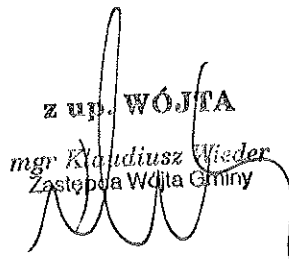 z up. WÓJTA
mgr Klaudiusz Wieder
Zastępca Wójta Gminy